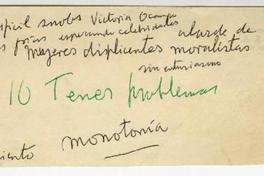 snobs Victoria Ocampo
esperando celebridades
alarde de
mujeres displicentes moralistas
sin entusiasmo
10 Tener problemas
monotonía